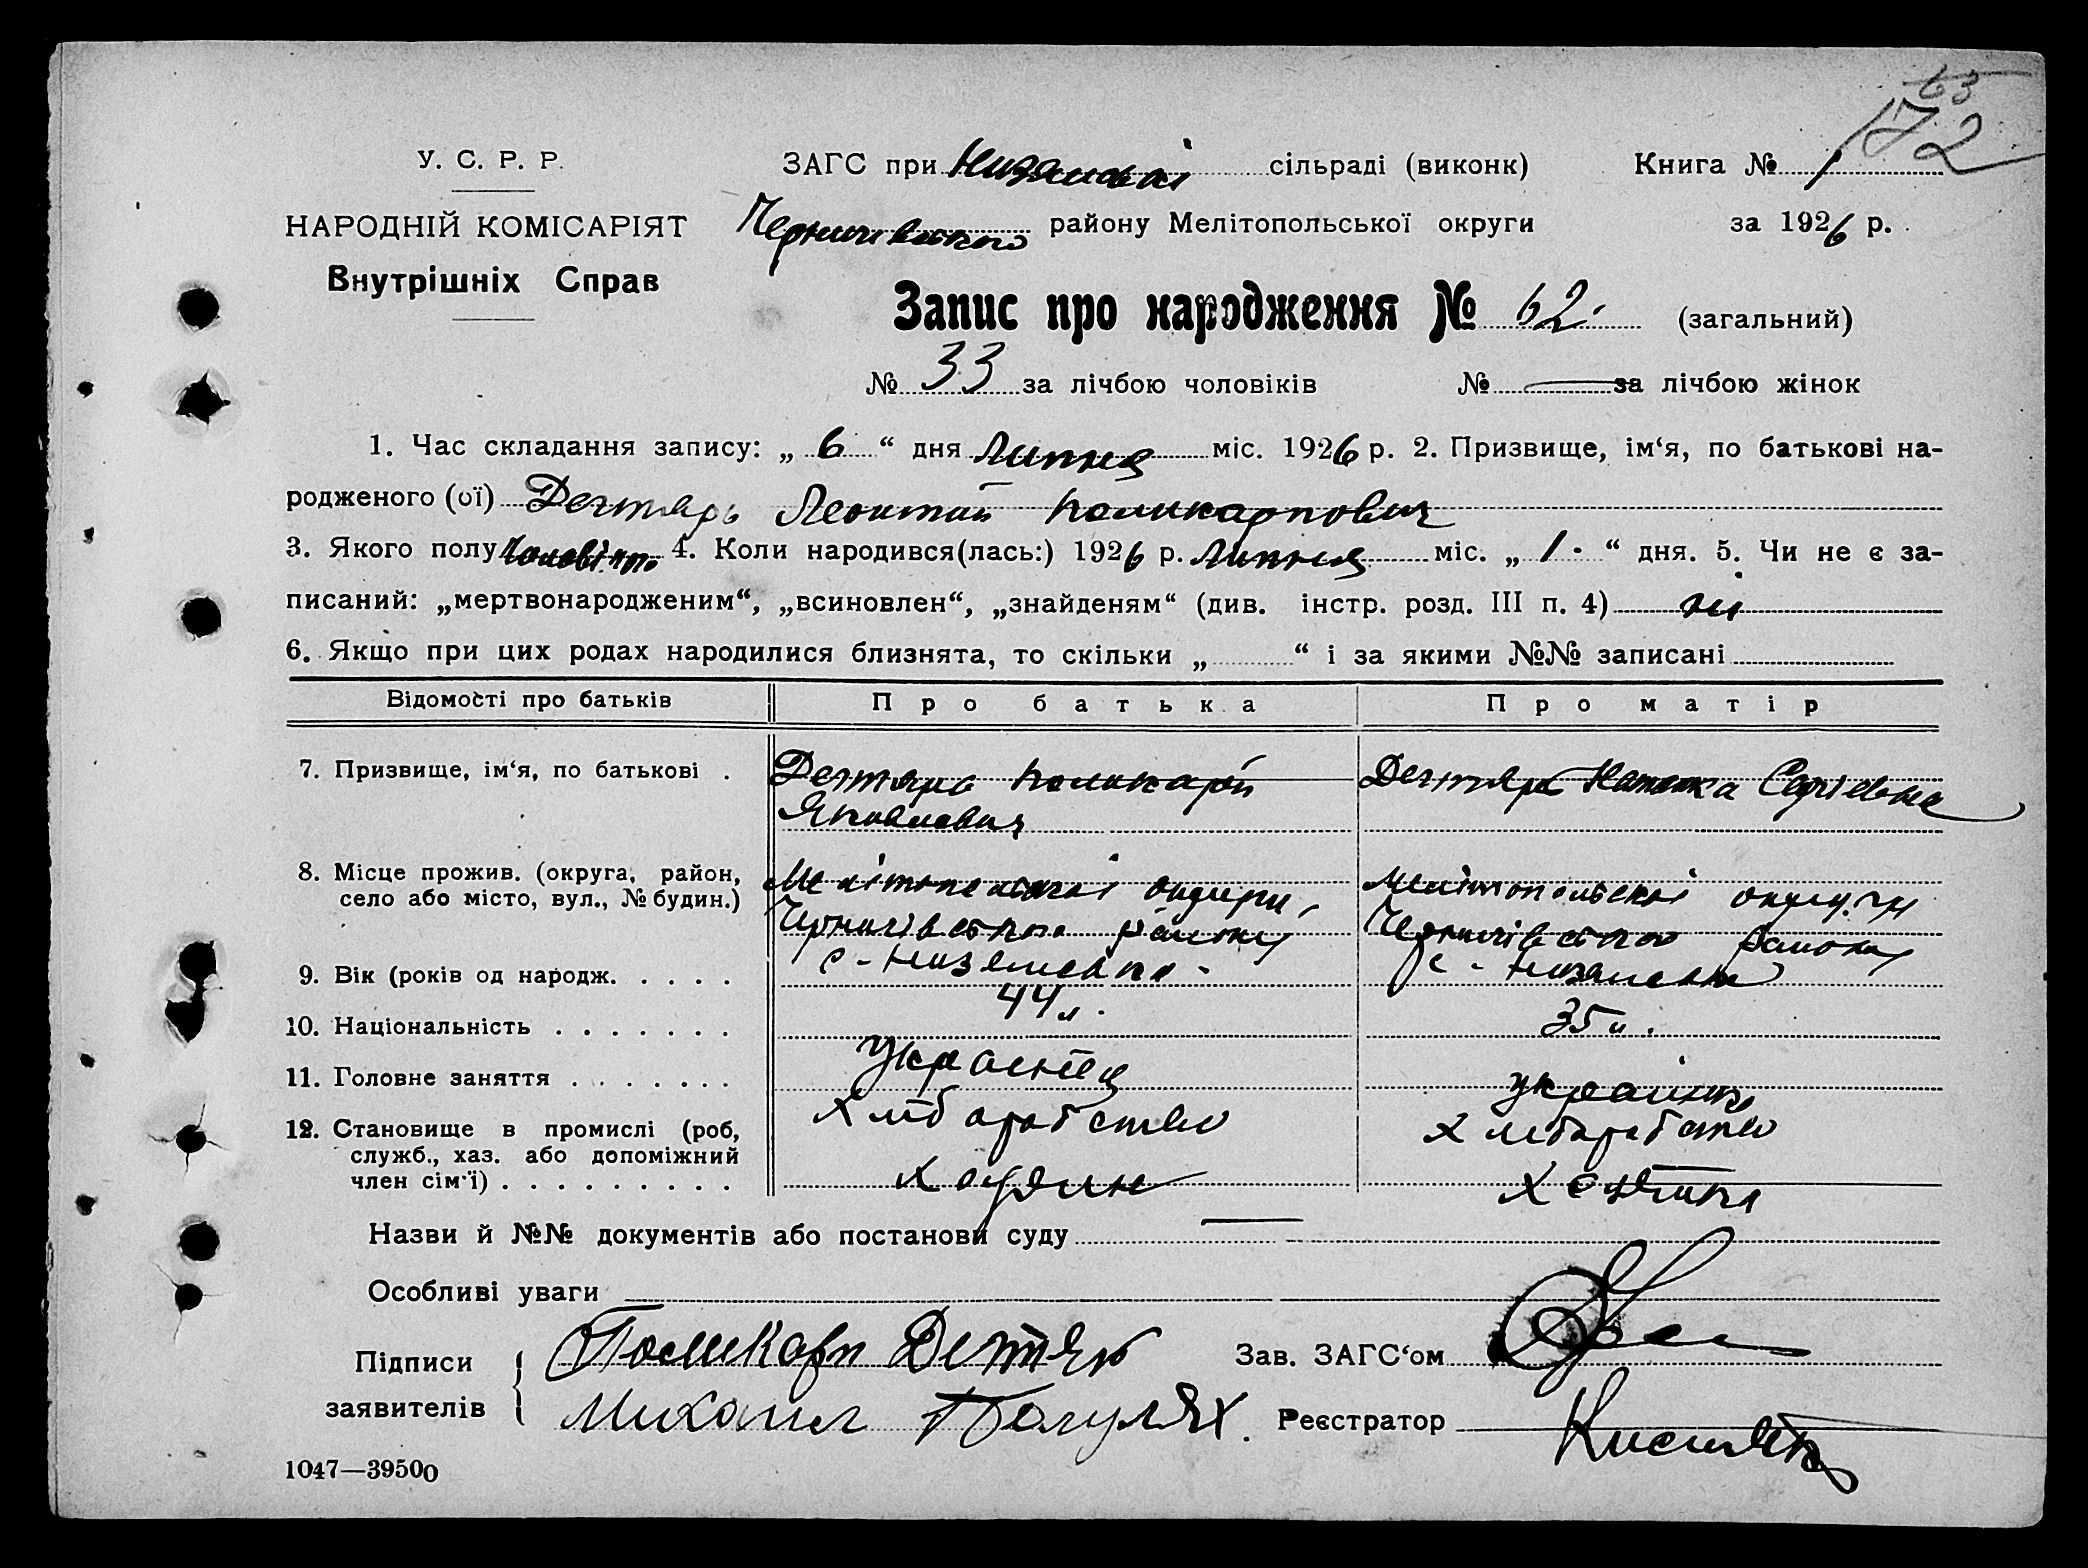 63
172
У. С. Р. Р.
ЗАГС при Низянській сільраді (виконк) Книга № 1
НАРОДНІЙ КОМІСАРІЯТ
Чернигівського району Мелітопольської округи за 1926 р.
Внутрішніх Справ
Запис про народження № 62. (загальний)
№ 33 за лічбою чоловіків № — за лічбою жінок
1. Час складання запису: „ 6 “ дня Липня міс. 1926 р. 2. Призвище, ім‘я, по батькові на-
родженого (ої) Дегтярь Леонтій Поликарпович
3. Якого полу 4. Коли народився(лась:) 1926 р. Липня міс. „ 1 “ дня. 5. Чи не є за-
писаний: „мертвонародженим“, „всиновлен“, „знайденям“ (див. інстр. розд. III п. 4) ні
6. Якщо при цих родах народилися близнята, то скільки „ “ і за якими №№ записані
Відомості про батьків Про батька Про матір
7. Призвище, ім‘я, по батькові . Дегтярь Поликарп Дегтярь Сергіевна
Яковлевич
8. Місце прожив. (округа, район, Мелітопольскоі округи, Мелітопольскоі округи
село або місто, вул., № будин.) Чернигівського району Чернигівського району
с-
9. Вік (років од народж. . . . . 44 л. 35 л.
10. Національність . . . . . . . Украінец украінка
11. Головне заняття . . . . . . . Хліборобство хліборобство
12. Становище в промислі (роб,
служб., хаз. або допоміжний
член сім‘ї) . . . . . . . . . Хазяин Хазяйка
Назви й №№ документів або постанови суду —
Особливі уваги
Підписи Поликарп Дегтяр Зав. ЗАГС‘ом
заявителів Михаил Реєстратор
1047—39500